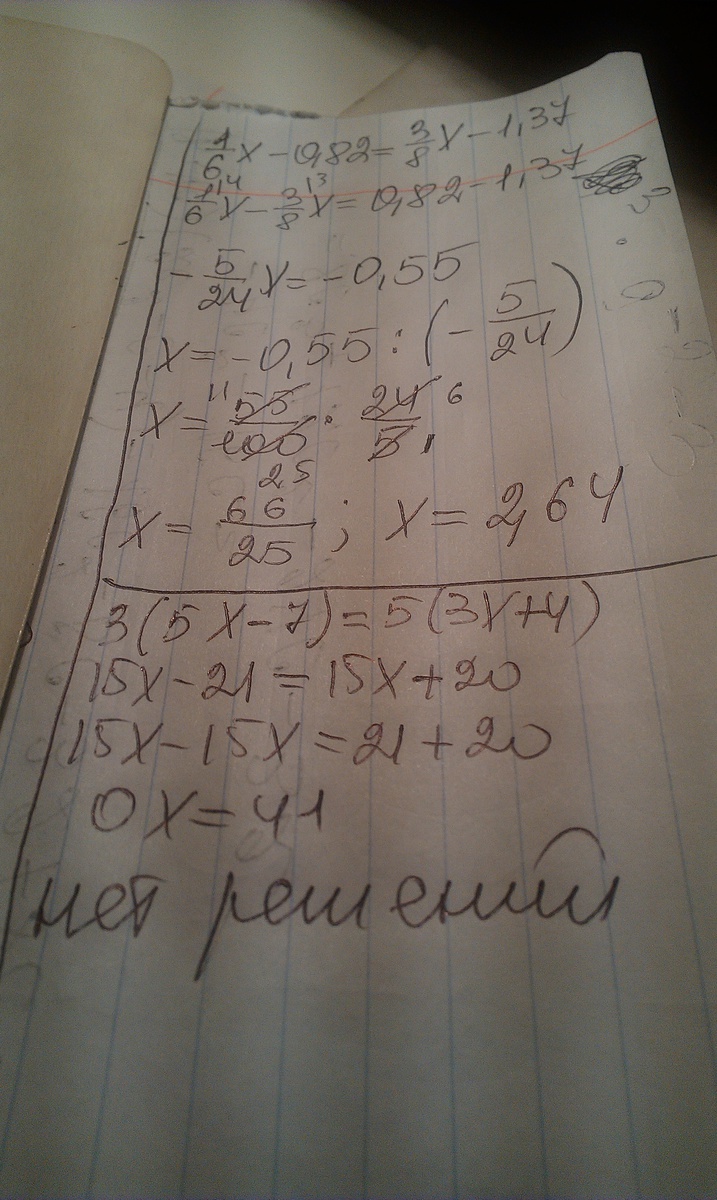 1/6 x - 0,82 = 3/8 x - 1,37
1/6 |4 x - 3/8 |3 x = 0,82 - 1,37
- 5/24 x = - 0,55
x = - 0,55 : (- 5/24)
x = 11 55/100 25 · 24 6/5 1
x = 66/25 ; x = 2,64
3(5x - 7) = 5(3x + 4)
15x - 21 = 15x + 20
15x - 15x = 21 + 20
0x = 41
нет решений